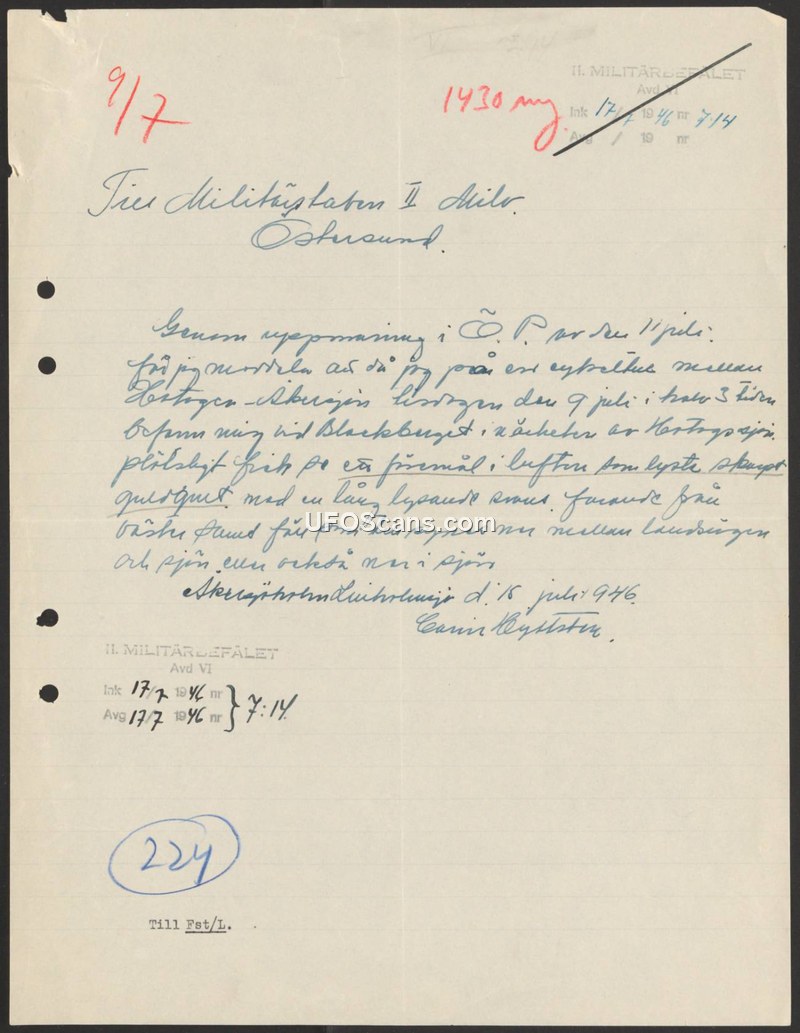 9/7
1430 my
II. MILITÄRBEFÄLET
Avd VI
Ink 17/7 1946 nr 7:14
Avg / 19 nr
Till Militärstaben II Milo.
Östersund.
Genom uppmaning i Ö. P. av den 11 juli.
får jag meddela att då jag på en cykeltur mellan
Hotagen-Åkersjön tisdagen den 9 juli i halv 3 tiden
befann mig vid Blackberget i närheten av Hotagssjön
plötsligt fick se ett föremål i luften som lyste skarpt
guldgult med en lång lysande svans farande från
väster samt föll ner mellan landsvägen
och sjön eller också ner i sjön
d. 15 juli 946.
Carin Hyttsten.
UFOScans.com
II. MILITÄRBEFÄLET
Avd VI
Ink 17/7 1946 nr
Avg 17/7 1946 nr } 7:14.
224
Till Fst/L.